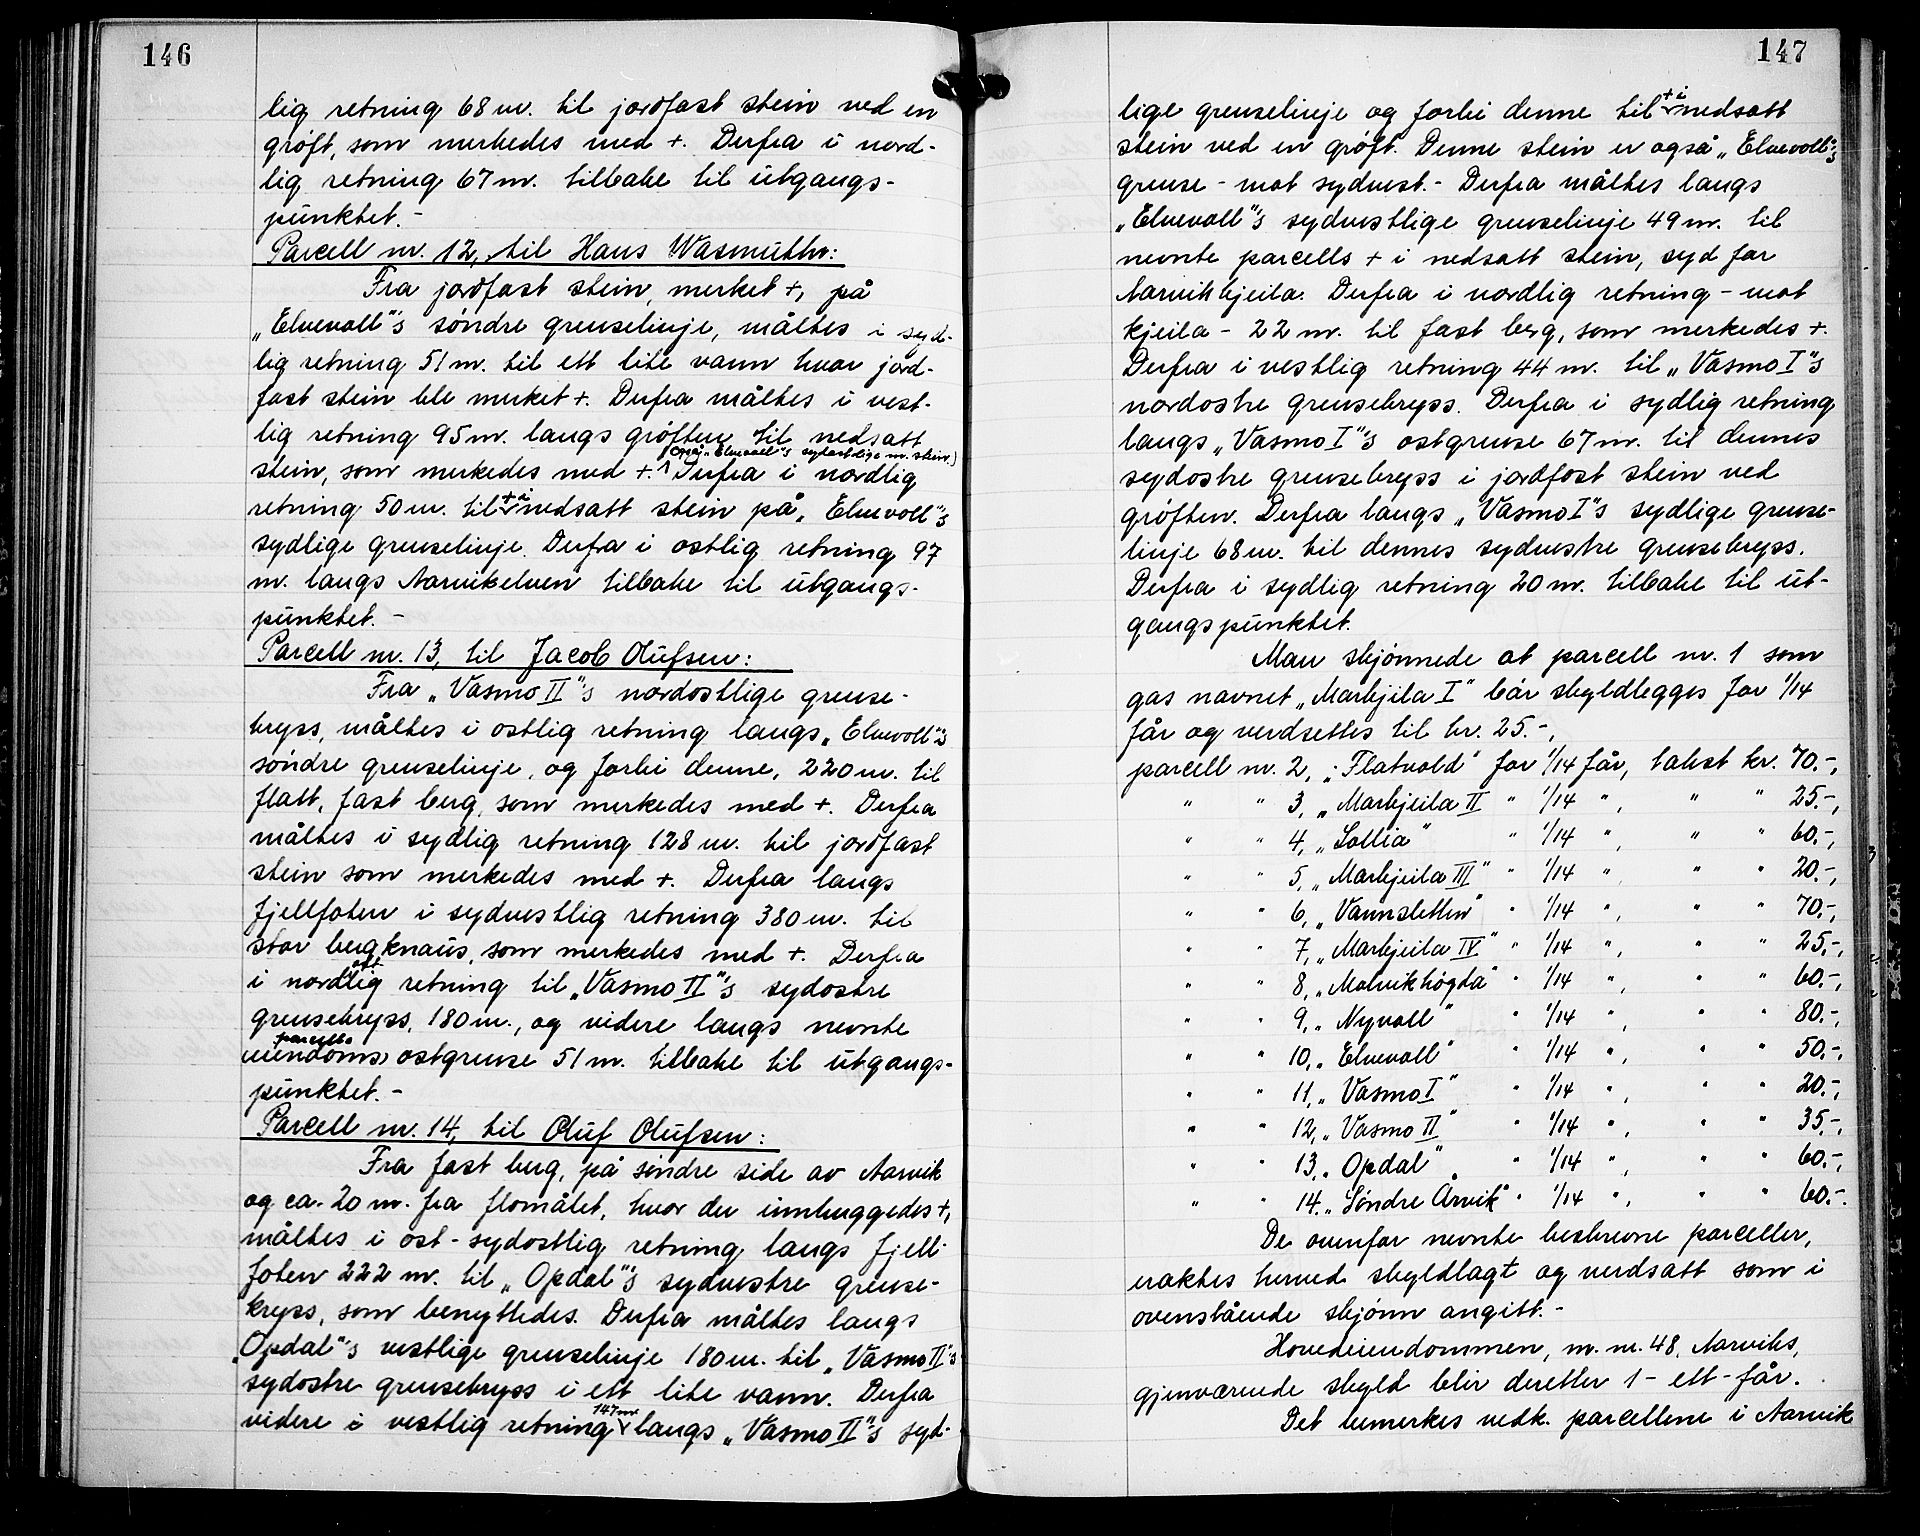 146
lig retning 68 m. til jordfast stein ved en
grøft, som merkedes med +. Derfra i nord-
lig retning 67 m. tilbake til utgangs-
punktet.-
Parcell nr. 12, til Hans Wasmuth:
Fra jordfast stein, merket +, på
„Elvevoll"s søndre grenselinje, måltes i syd-
lig retning 51 m. til ett lite vann hvor jord-
fast stein ble merket +. Derfra måltes i vest-
lig retning 95 m. langs grøften til nedsatt
(også „Elvevoll"s sydøstlige m. stein.)
stein, som merkedes med +. Derfra i nordlig
retning 50 m. til + i nedsatt stein på „Elvevoll"s
sydlige grenselinje. Derfra i østlig retning 97
m. langs Aarvikelven tilbake til utgangs-
punktet.-
Parcell nr. 13, til Jacob Olufsen:
Fra „Vasmo II"s nordøstlige grense-
kryss, måltes i østlig retning langs „Elvevoll"s
søndre grenselinje, og forbi denne, 220 m. til
flatt, fast berg, som merkedes med +. Derfra
måltes i sydlig retning 128 m. til jordfast
stein som merkedes med +. Derfra langs
fjellfoten i sydvestlig retning 380 m. til
stor bergknaus, som merkedes med +. Derfra
øst
i nordlig retning til „Vasmo II"s sydøstre
grensekryss, 180 m., og videre langs nevnte
parcells
eiendoms østgrense 51 m. tilbake til utgangs-
punktet.-
Parcell nr. 14, til Oluf Olufsen:
Fra fast berg, på søndre side av Aarvik
og ca. 20 m. fra flomålet, hvor der innhuggedes +,
måltes i øst-sydøstlig retning langs fjell-
foten 222 m. til „Opdal"s sydvestre grense-
kryss, som benyttedes. Derfra måltes langs
„Opdal"s vestlige grenselinje 180 m. til „Vasmo II"s
sydøstre grensekryss i ett lite vann. Derfra
147 m.
videre i vestlig retning langs „Vasmo II"s syd-
147
lige grenselinje og forbi denne til + i nedsatt
stein ved en grøft. Denne stein er også „Elvevoll"s
grense - mot sydvest.- Derfra måltes langs
„Elvevoll"s sydvestlige grenselinje 49 m. til
nevnte parcells + i nedsatt stein, syd for
Aarvikkjeila. Derfra i nordlig retning - mot
kjeila - 22 m. til fast berg, som merkedes +.
Derfra i vestlig retning 44 m. til „Vasmo I"s
nordøstre grensekryss. Derfra i sydlig retning
langs „Vasmo I"s østgrense 67 m. til dennes
sydøstre grensekryss i jordfast stein ved
grøften. Derfra langs „Vasmo I"s sydlige grense-
linje 68 m. til dennes sydvestre grensekryss.
Derfra i sydlig retning 20 m. tilbake til ut-
gangspunktet.
Man skjønnede at parcell nr. 1 som
gas navnet „Markjeila I" bør skyldlegges for 1/14
får og verdsettes til kr. 25.-,
parcell nr. 2, „Flatvold" for 1/14 får, takst kr. 70.-,
" " 3, „Markjeila II " 1/14 ", " " 25.-,
" " 4, „Sollia" " 1/14 ", " " 60.-,
" " 5, „Markjeila III" " 1/14 ", " " 20.-,
" " 6, „Vannsletten" " 1/14 ", " " 70.-,
" " 7, „Markjeila IV" " 1/14 ", " " 25.-,
" " 8, „Molvikhøgda" " 1/14 ", " " 60.-,
" " 9, „Nyvoll" " 1/14 ", " " 80.-,
" " 10, „Elvevoll" " 1/14 ", " " 50.-,
" " 11, „Vasmo I" " 1/14 ", " " 20.-,
" " 12, „Vasmo II" " 1/14 ", " " 35.-,
" " 13, „Opdal" " 1/14 ", " " 60.-,
" " 14. „Søndre Årvik" " 1/14 ", " " 60.-.
De ovenfor nevnte beskrevne parceller,
eraktes herved skyldlagt og verdsatt som i
ovenstående skjønn angitt.-
Hovedeiendommen, m. nr. 48, Aarviks,
gjenværende skyld blir deretter 1 - ett - får.
Det bemerkes vedk. parcellene i Aarvik